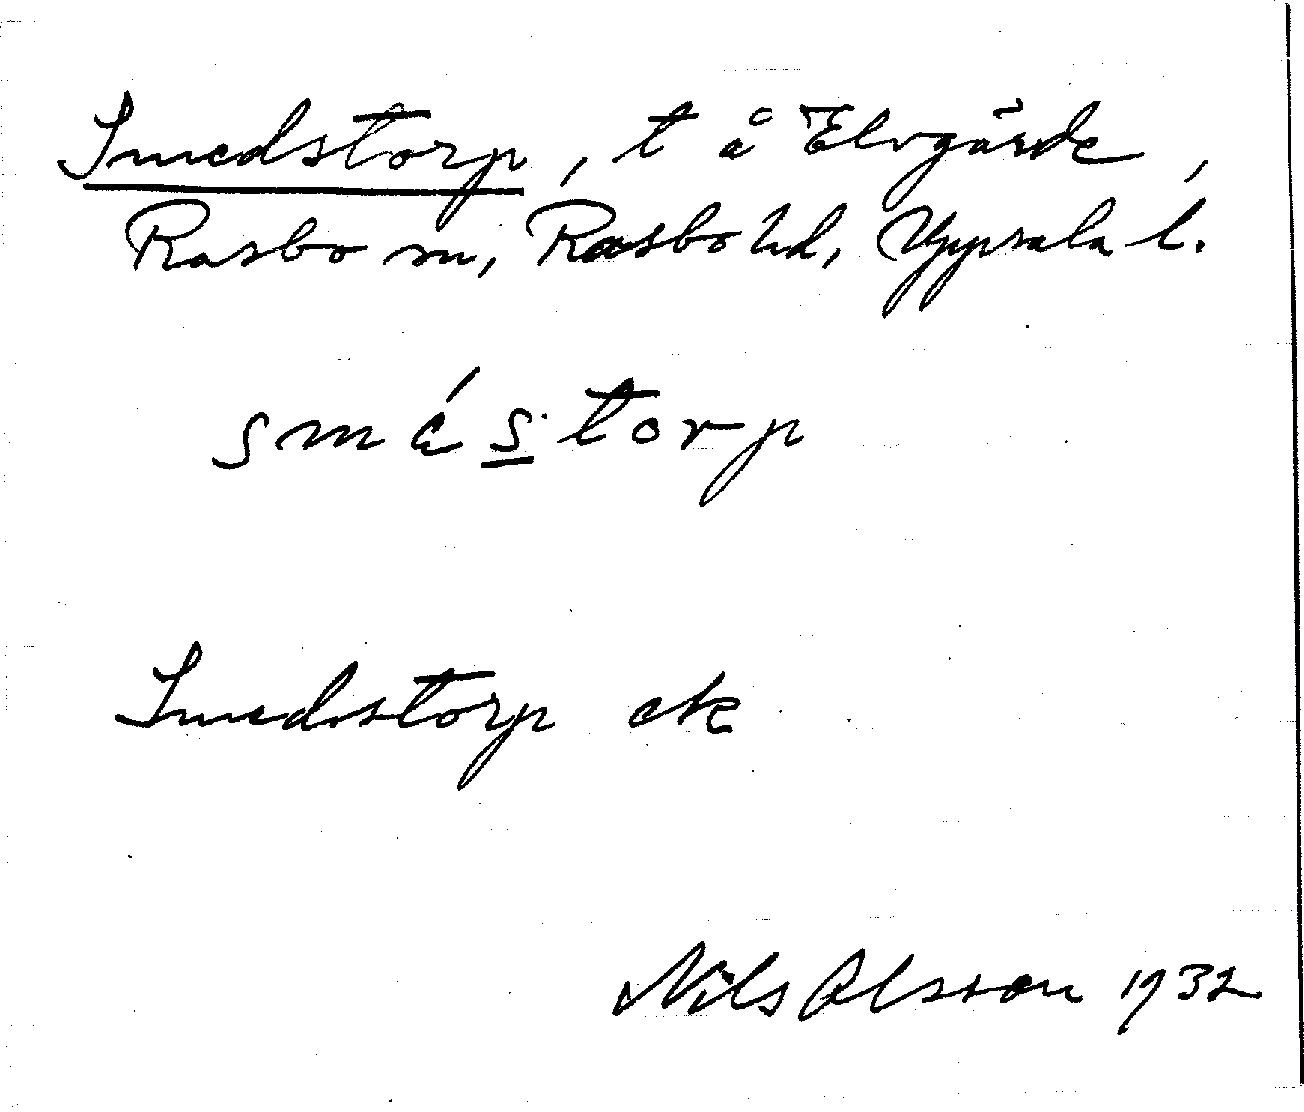 Smedstorp, t å Elvgärde,
Rasbo sn, Rasbo hd, Uppsala l.
smés·torp
Smedstorp ek
Nils Olsson 1932